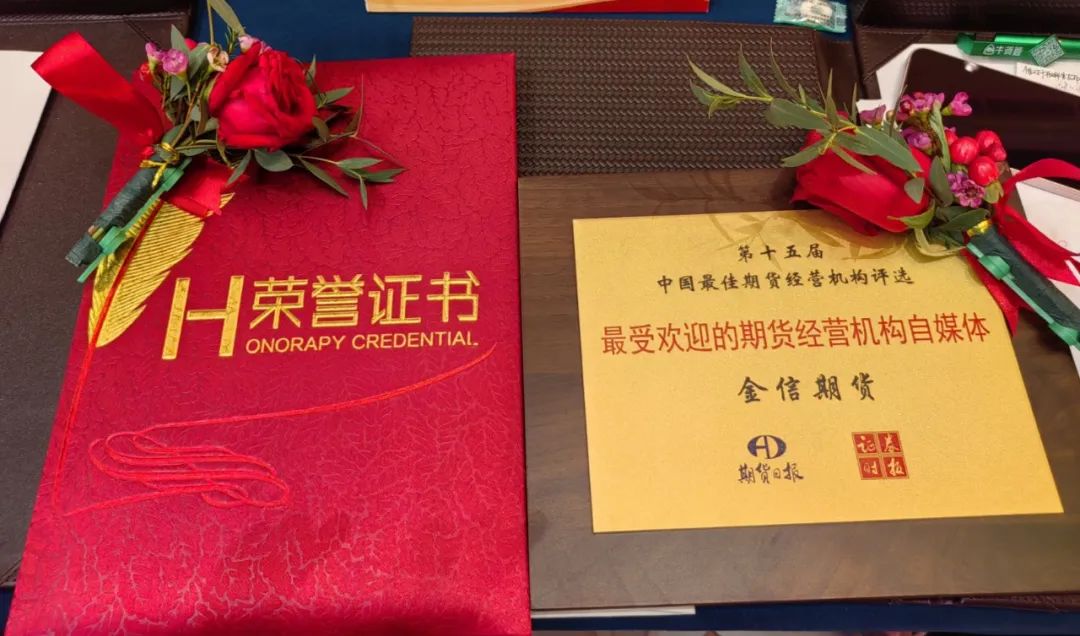 荣誉证书
HONORAPY CREDENTIAL
第十五届
中国最佳期货经营机构评选
最受欢迎的期货经营机构自媒体
金信期货
期货日报
证券时报